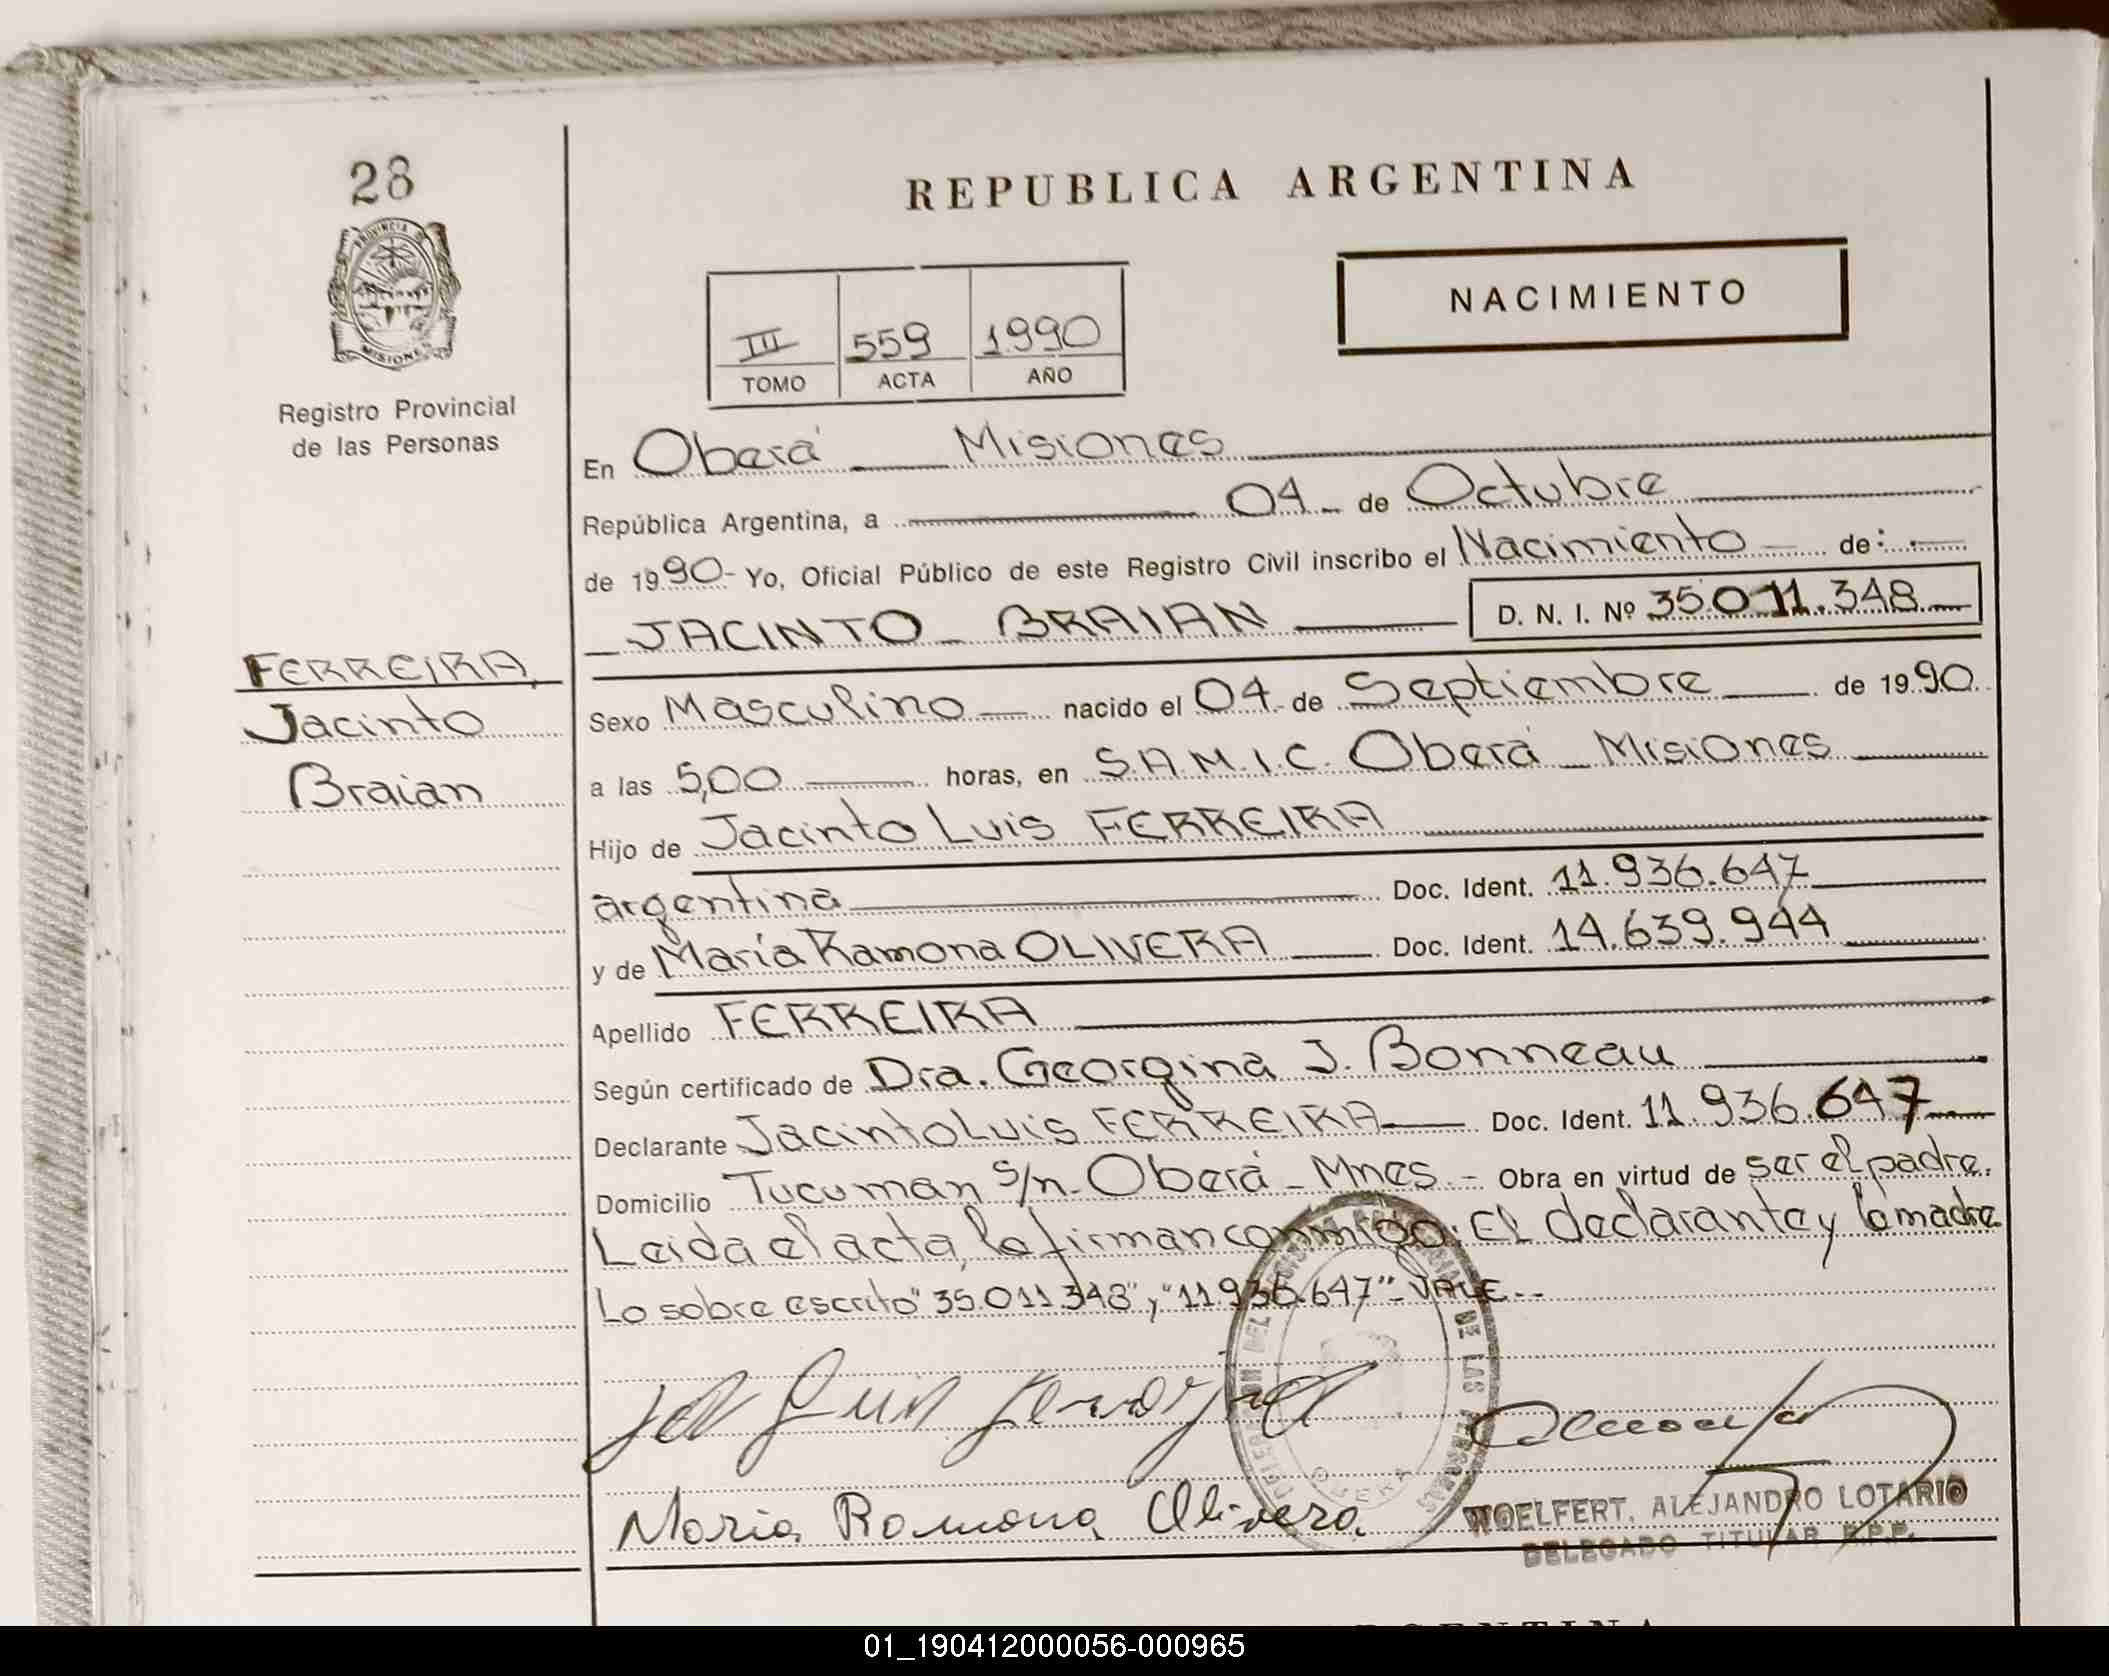 28
PROVINCIA DE
MISIONES
Registro Provincial
de las Personas
FERREIRA,
Jacinto
Braian
REPUBLICA ARGENTINA
NACIMIENTO
III 559 1990
TOMO ACTA AÑO
En Oberá Misiones
República Argentina, a 04 de Octubre
de 1990- Yo, Oficial Público de este Registro Civil inscribo el Nacimiento de:
JACINTO BRAIAN D. N. I. Nº 35.011.348
Sexo Masculino nacido el 04 de Septiembre de 1990
a las 5,00 horas, en S.A.M.I.C. Oberá Misiones
Hijo de Jacinto Luis FERREIRA
argentina Doc. Ident. 11.936.647
y de María Ramona OLIVERA Doc. Ident. 14.639.944
Apellido FERREIRA
Según certificado de Dra. Georgina J. Bonneau
Declarante Jacinto Luis FERREIRA Doc. Ident. 11.936.647
Domicilio Tucuman s/n- Oberá - Mnes. - Obra en virtud de ser el padre.
Leida el acta, la firman conmigo: El declarante y la madre
Lo sobre escrito "35.011.348", "11.936.647" - VALE. -
Maria Ramona Olivera
WOELFERT, ALEJANDRO LOTARIO
DELEGADO TITULAR R.P.P.
01_190412000056-000965